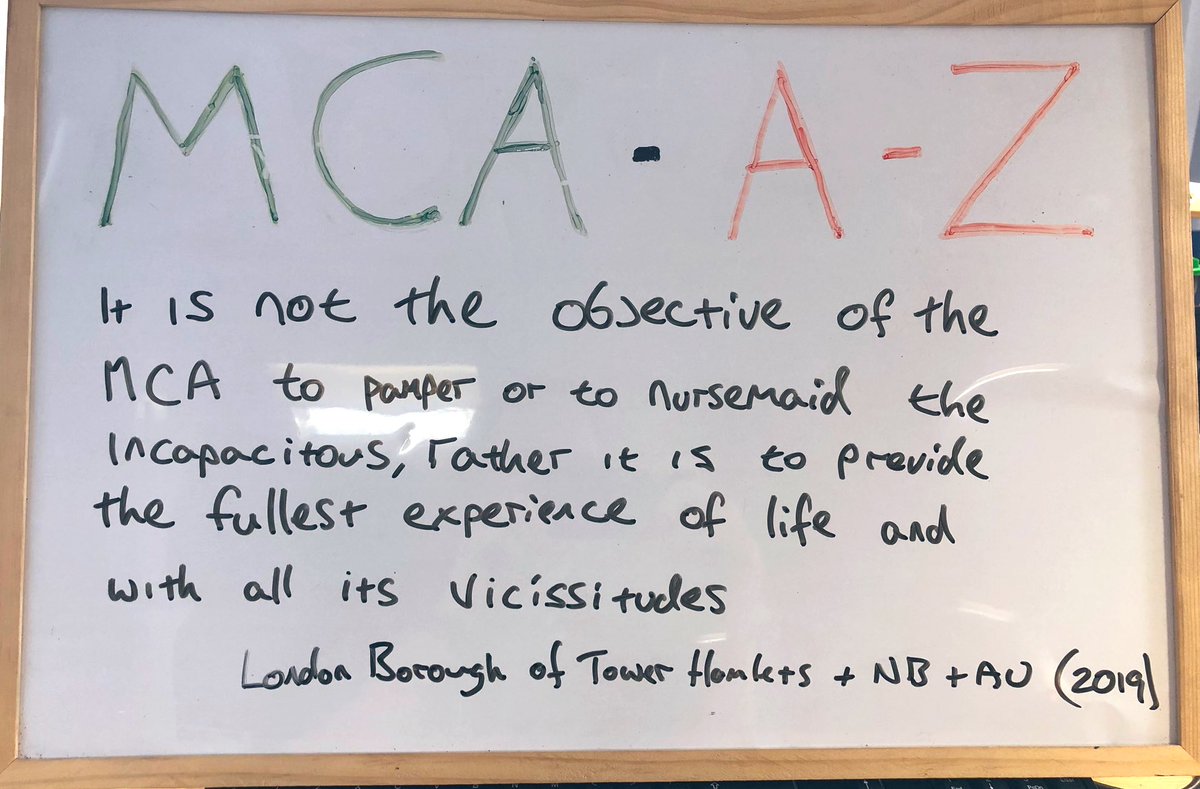 MCA - A-Z
It is not the objective of the
MCA to pamper or to nursemaid the
incapacitous, rather it is to provide
the fullest experience of life and
with all its vicissitudes
London Borough of Tower Hamlets + NB + AU (2019)